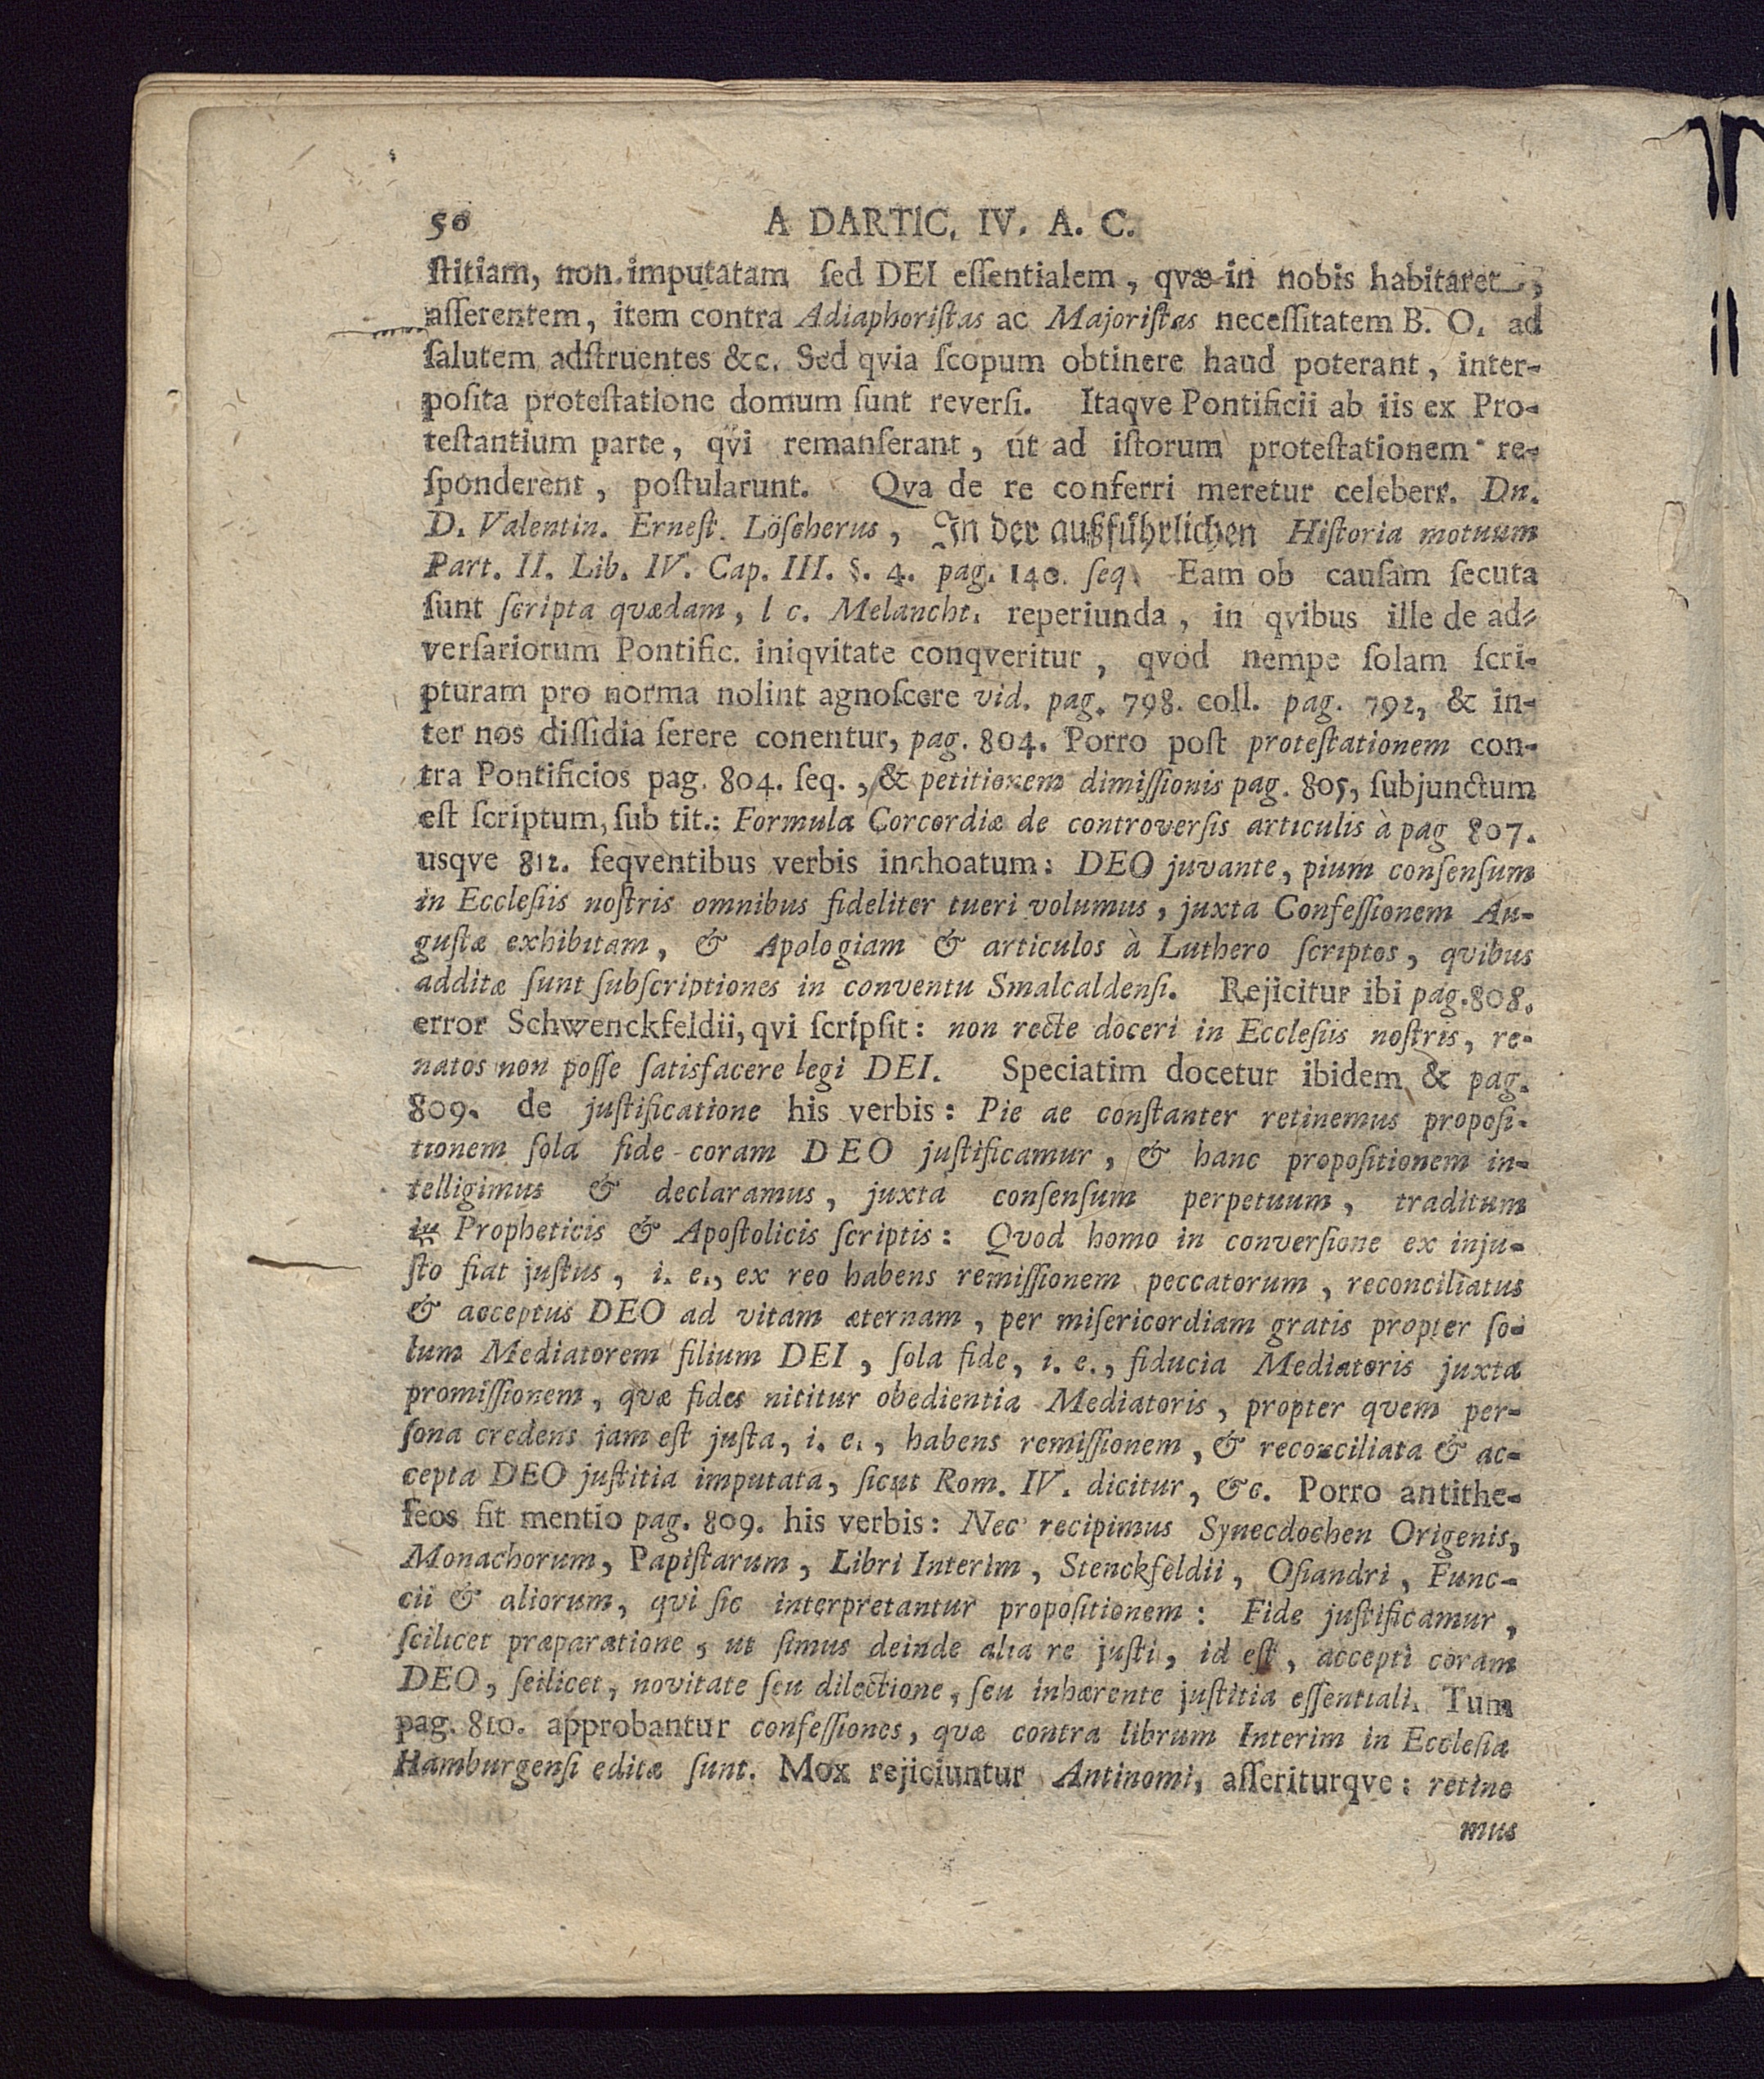 50 A DARTIC. IV. A. C.
ſtitiam, non imputatam ſed DEI eſſentialem, qvæ in nobis habitaret,
aſſerentem, item contra Adiaphoriſtas ac Majoriſtas neceſſitatem B. O. ad
ſalutem adſtruentes &c. Sed qvia ſcopum obtinere haud poterant, inter-
poſita proteſtatione domum ſunt reverſi. Itaqve Pontificii ab iis ex Pro-
teſtantium parte, qvi remanſerant, ut ad iſtorum proteſtationem re-
ſponderent, poſtularunt. Qva de re conferri meretur celeberr. Dn.
D. Valentin. Erneſt. Löſcherus, In der außführlichen Hiſtoria motuum
Part. II. Lib. IV. Cap. III. §. 4. pag. 140. ſeq. Eam ob cauſam ſecuta
ſunt ſcripta quædam, l c. Melancht. reperiunda, in qvibus ille de ad-
verſariorum Pontific. iniqvitate conqveritur, qvod nempe ſolam ſcri-
pturam pro norma nolint agnoſcere vid. pag. 798. coll. pag. 792, & in-
ter nos diſſidia ſerere conentur, pag. 804. Porro poſt proteſtationem con-
tra Pontificios pag. 804. ſeq., & petitionem dimiſſionis pag. 805, ſubjunctum
eſt ſcriptum, ſub tit.: Formula Corcordiæ de controverſis articulis à pag 807.
usqve 812. ſeqventibus verbis inchoatum: DEO juvante, pium conſenſum
in Eccleſiis noſtris omnibus fideliter tueri volumus, juxta Confeſſionem Au-
guſtæ exhibitam, & Apologiam & articulos à Luthero ſcriptos, qvibus
additæ ſunt ſubſcriptiones in conventu Smalcaldenſi. Rejicitur ibi pag. 808.
error Schwenckfeldii, qvi ſcripſit: non recte doceri in Eccleſiis noſtris, re-
natos non poſſe ſatisfacere legi DEI. Speciatim docetur ibidem & pag.
809. de juſtificatione his verbis: Pie ac conſtanter retinemus propoſi-
tionem ſola fide coram DEO juſtificamur, & hanc propoſitionem in-
telligimus & declaramus, juxta conſenſum perpetuum, traditum
in Propheticis & Apoſtolicis ſcriptis: Qvod homo in converſione ex inju-
ſto fiat juſtus, i. e., ex reo habens remiſſionem peccatorum, reconciliatus
& acceptus DEO ad vitam æternam, per miſericordiam gratis propter ſo-
lum Mediatorem filium DEI, ſola fide, i. e., fiducia Mediatoris juxta
promiſſionem, qvæ fides nititur obedientia Mediatoris, propter qvem per-
ſona credens jam eſt juſta, i. e., habens remiſſionem, & reconciliata & ac-
cepta DEO juſtitia imputata, ſicut Rom. IV. dicitur, &c. Porro antithe-
ſeos fit mentio pag. 809. his verbis: Nec recipimus Synecdochen Origenis,
Monachorum, Papiſtarum, Libri Interim, Stenckfeldii, Oſiandri, Func-
cii & aliorum, qvi ſic interpretantur propoſitionem: Fide juſtificamur,
ſcilicet præparatione, ut ſimus deinde alia re juſti, id eſt, accepti coram
DEO, ſcilicet, novitate ſeu dilectione, ſeu inhærente juſtitia eſſentiali. Tum
pag. 810. approbantur confeſſiones, qvæ contra librum Interim in Eccleſia
Hamburgenſi editæ ſunt. Mox rejiciuntur Antinomi, aſſeriturqve: retine
mus